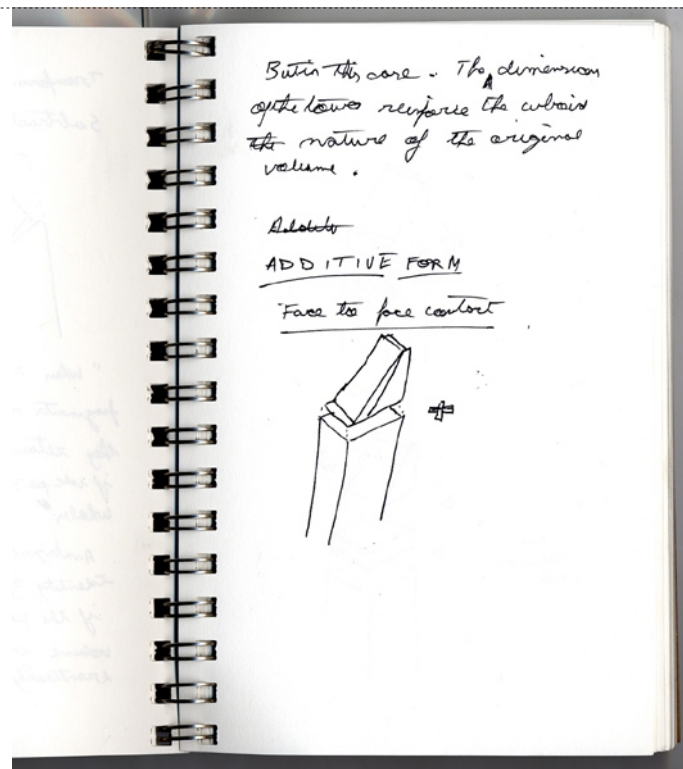 But in this case. The dimension
of the tower reinforse the cuboid
the nature of the original
volume.
ADDITIVE FORM
Face to face contact